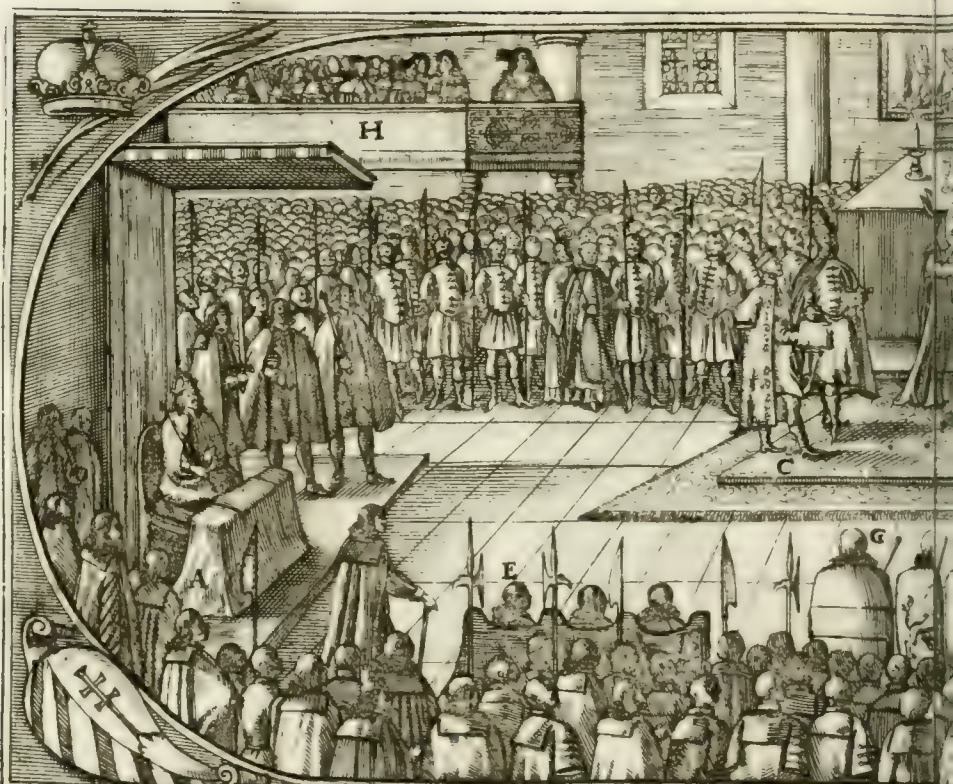 H
C
G
E
A